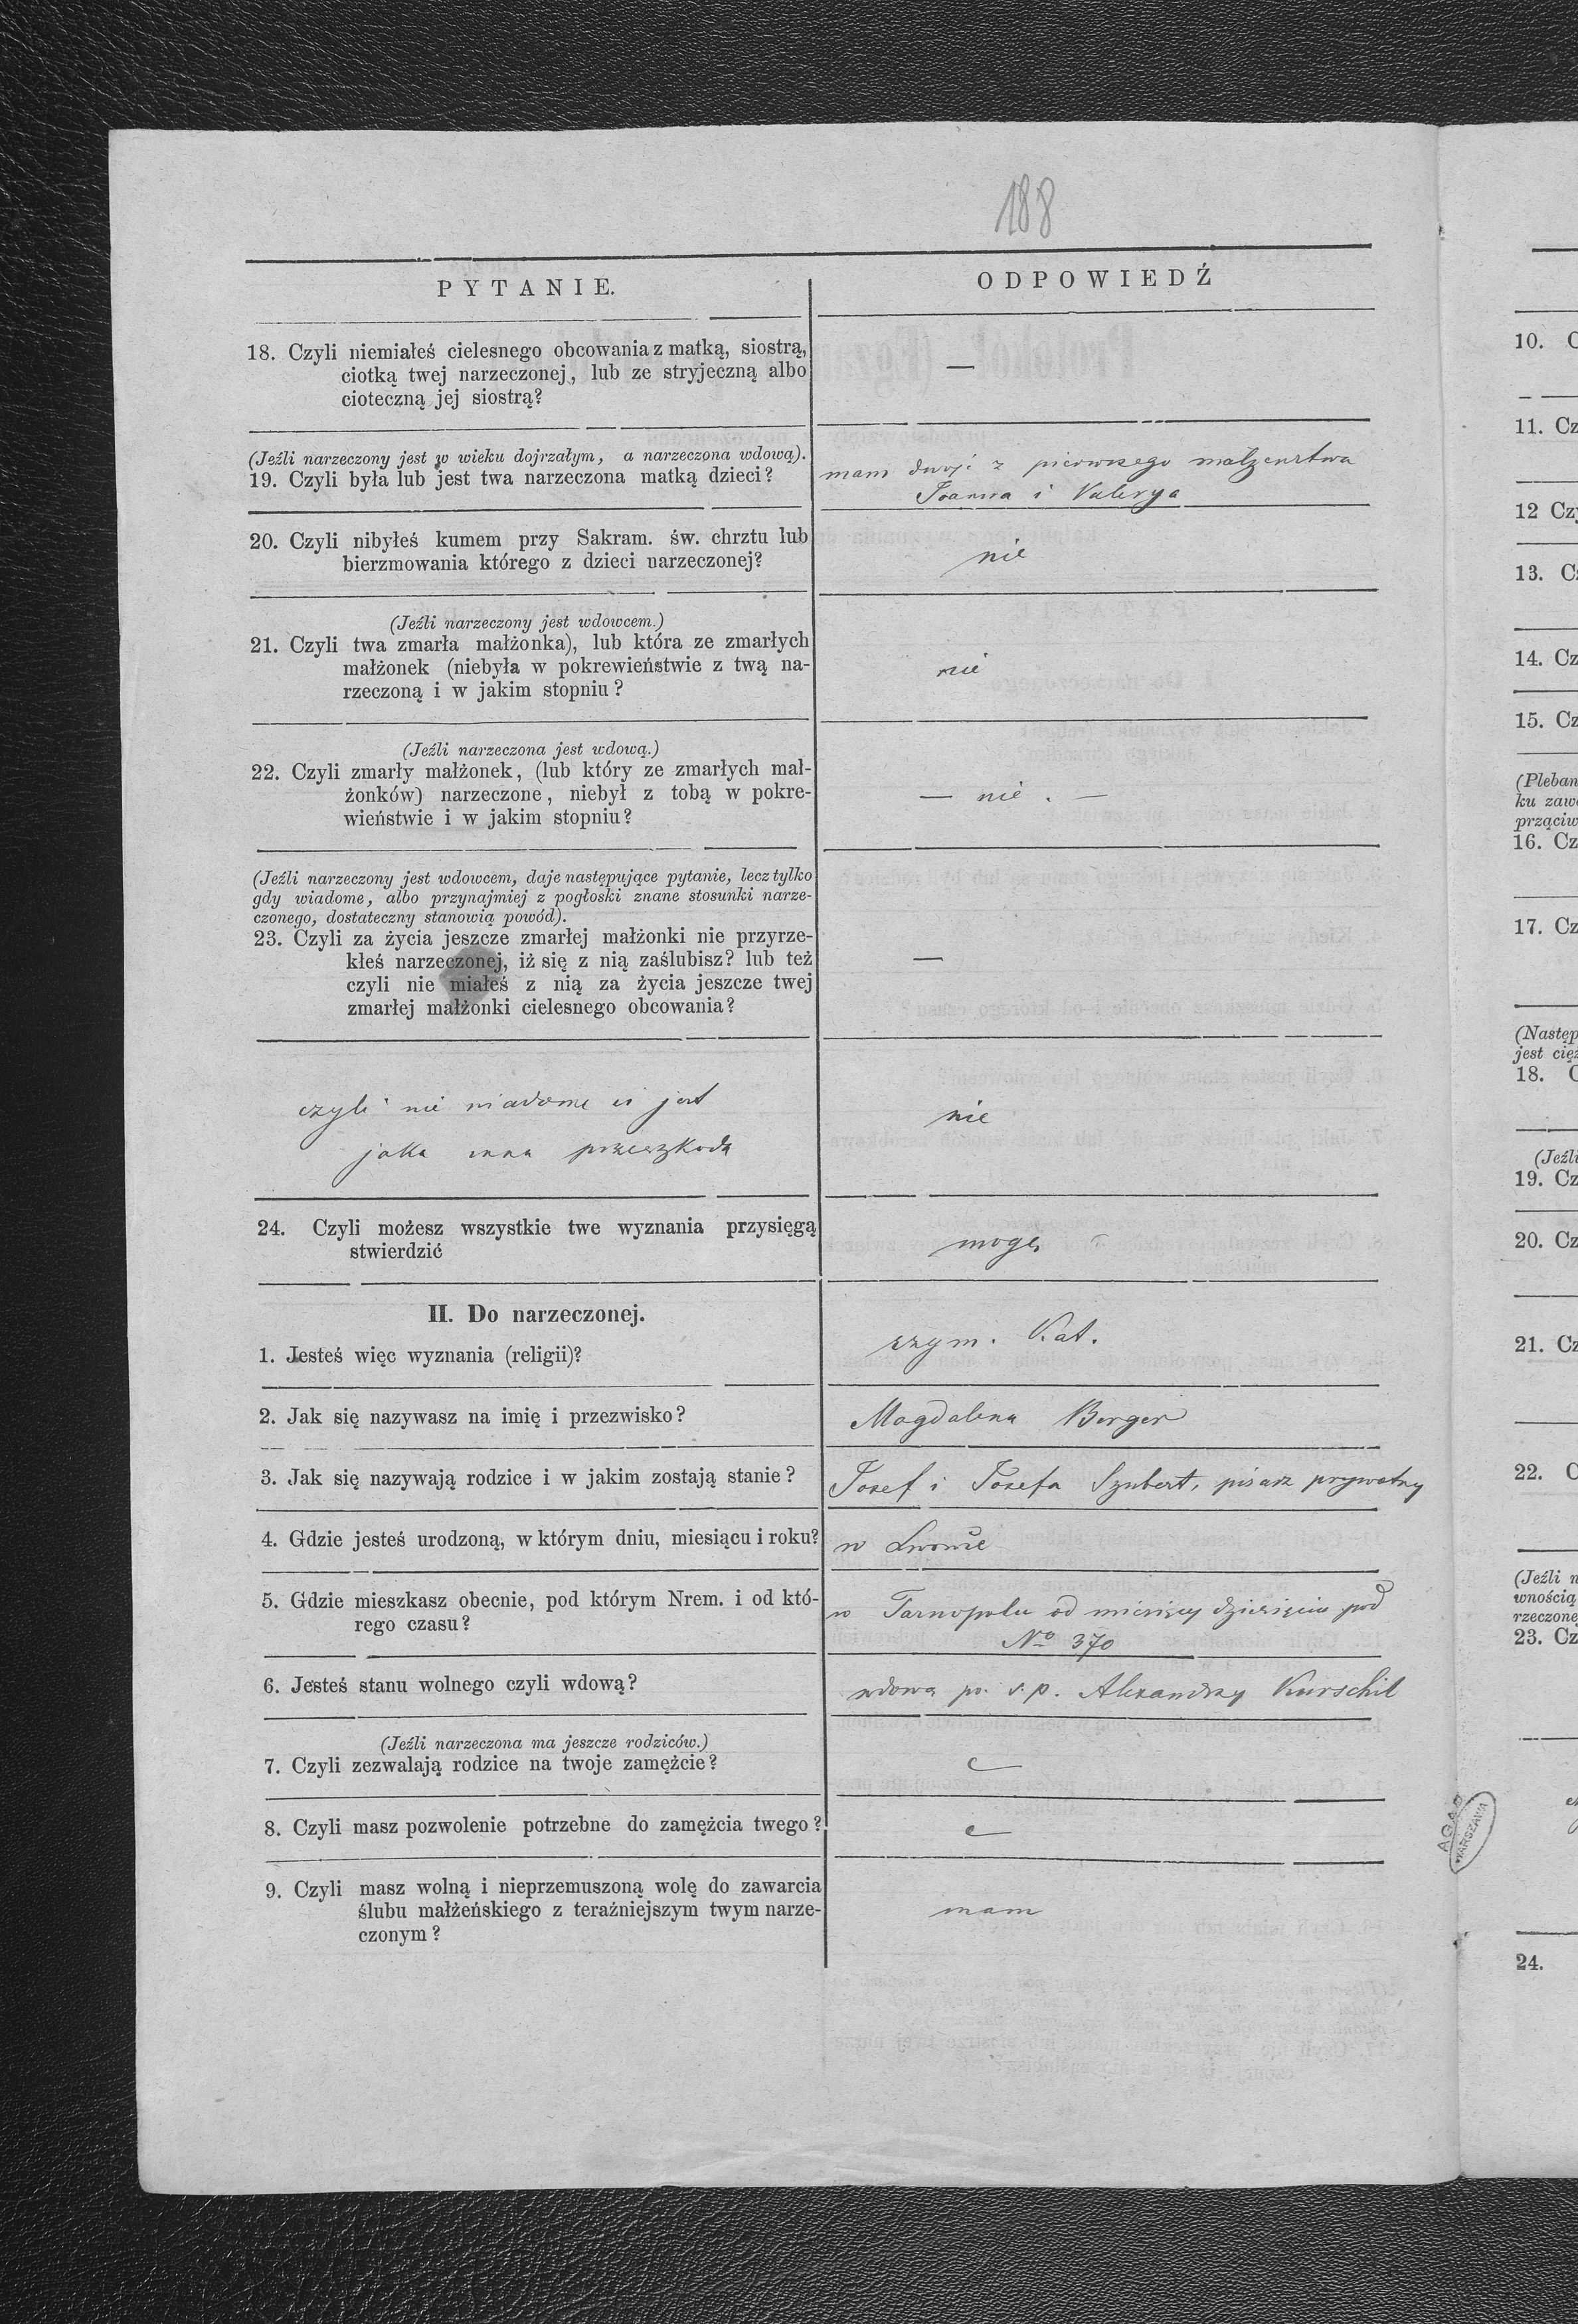 188
PYTANIE.
ODPOWIEDŹ
18. Czyli niemiałeś cielesnego obcowania z matką, siostrą,
ciotką twej narzeczonej, lub ze stryjeczną albo
cioteczną jej siostrą?
—
(Jeźli narzeczony jest w wieku dojrzałym, a narzeczona wdową).
19. Czyli była lub jest twa narzeczona matką dzieci?
mam dwoje z pierwszego małżeństwa
Joanna i Valerya
20. Czyli nibyłeś kumem przy Sakram. św. chrztu lub
bierzmowania którego z dzieci narzeczonej?
nie
(Jeźli narzeczony jest wdowcem.)
21. Czyli twa zmarła małżonka), lub która ze zmarłych
małżonek (niebyła w pokrewieństwie z twą na-
rzeczoną i w jakim stopniu?
nie
(Jeźli narzeczona jest wdową.)
22. Czyli zmarły małżonek, (lub który ze zmarłych mał-
żonków) narzeczone, niebył z tobą w pokre-
wieństwie i w jakim stopniu?
— nie . —
(Jeźli narzeczony jest wdowcem, daje następujące pytanie, lecz tylko
gdy wiadome, albo przynajmiej z pogłoski znane stosunki narze-
czonego, dostateczny stanowią powód).
23. Czyli za życia jeszcze zmarłej małżonki nie przyrze-
kłeś narzeczonej, iż się z nią zaślubisz? lub też
czyli nie miałeś z nią za życia jeszcze twej
zmarłej małżonki cielesnego obcowania?
—
czyli nie wiadome ci jest
jaka inna przeszkoda
nie
24. Czyli możesz wszystkie twe wyznania przysięgą
stwierdzić
mogę
II. Do narzeczonej.
1. Jesteś więc wyznania (religii)?
rzym. Kat.
2. Jak się nazywasz na imię i przezwisko?
Magdalena Berger
3. Jak się nazywają rodzice i w jakim zostają stanie?
Josef i Josefa Szubert, pisarz prywatny
4. Gdzie jesteś urodzoną, w którym dniu, miesiącu i roku?
w Lwowie
5. Gdzie mieszkasz obecnie, pod którym Nrem. i od któ-
rego czasu?
w Tarnopolu od miesięcy dziesięciu pod
No 370
6. Jesteś stanu wolnego czyli wdową?
wdowa po ś.p. Alexandrzy Kurschil
(Jeźli narzeczona ma jeszcze rodziców.)
7. Czyli zezwalają rodzice na twoje zamężcie?
8. Czyli masz pozwolenie potrzebne do zamężcia twego?
9. Czyli masz wolną i nieprzemuszoną wolę do zawarcia
ślubu małżeńskiego z teraźniejszym twym narze-
czonym?
mam
AGAD
WARSZAWA
10. C
11. Cz
12 Czy
13. C
14. Cz
15. Cz
(Pleban
ku zaw
prząciw
16. Cz
17. Cz
(Następ
jest cię
18. C
(Jeźli
19. Cz
20. Cz
21. Cz
22. C
(Jeźli n
wnością
rzeczone
23. Cz
24.